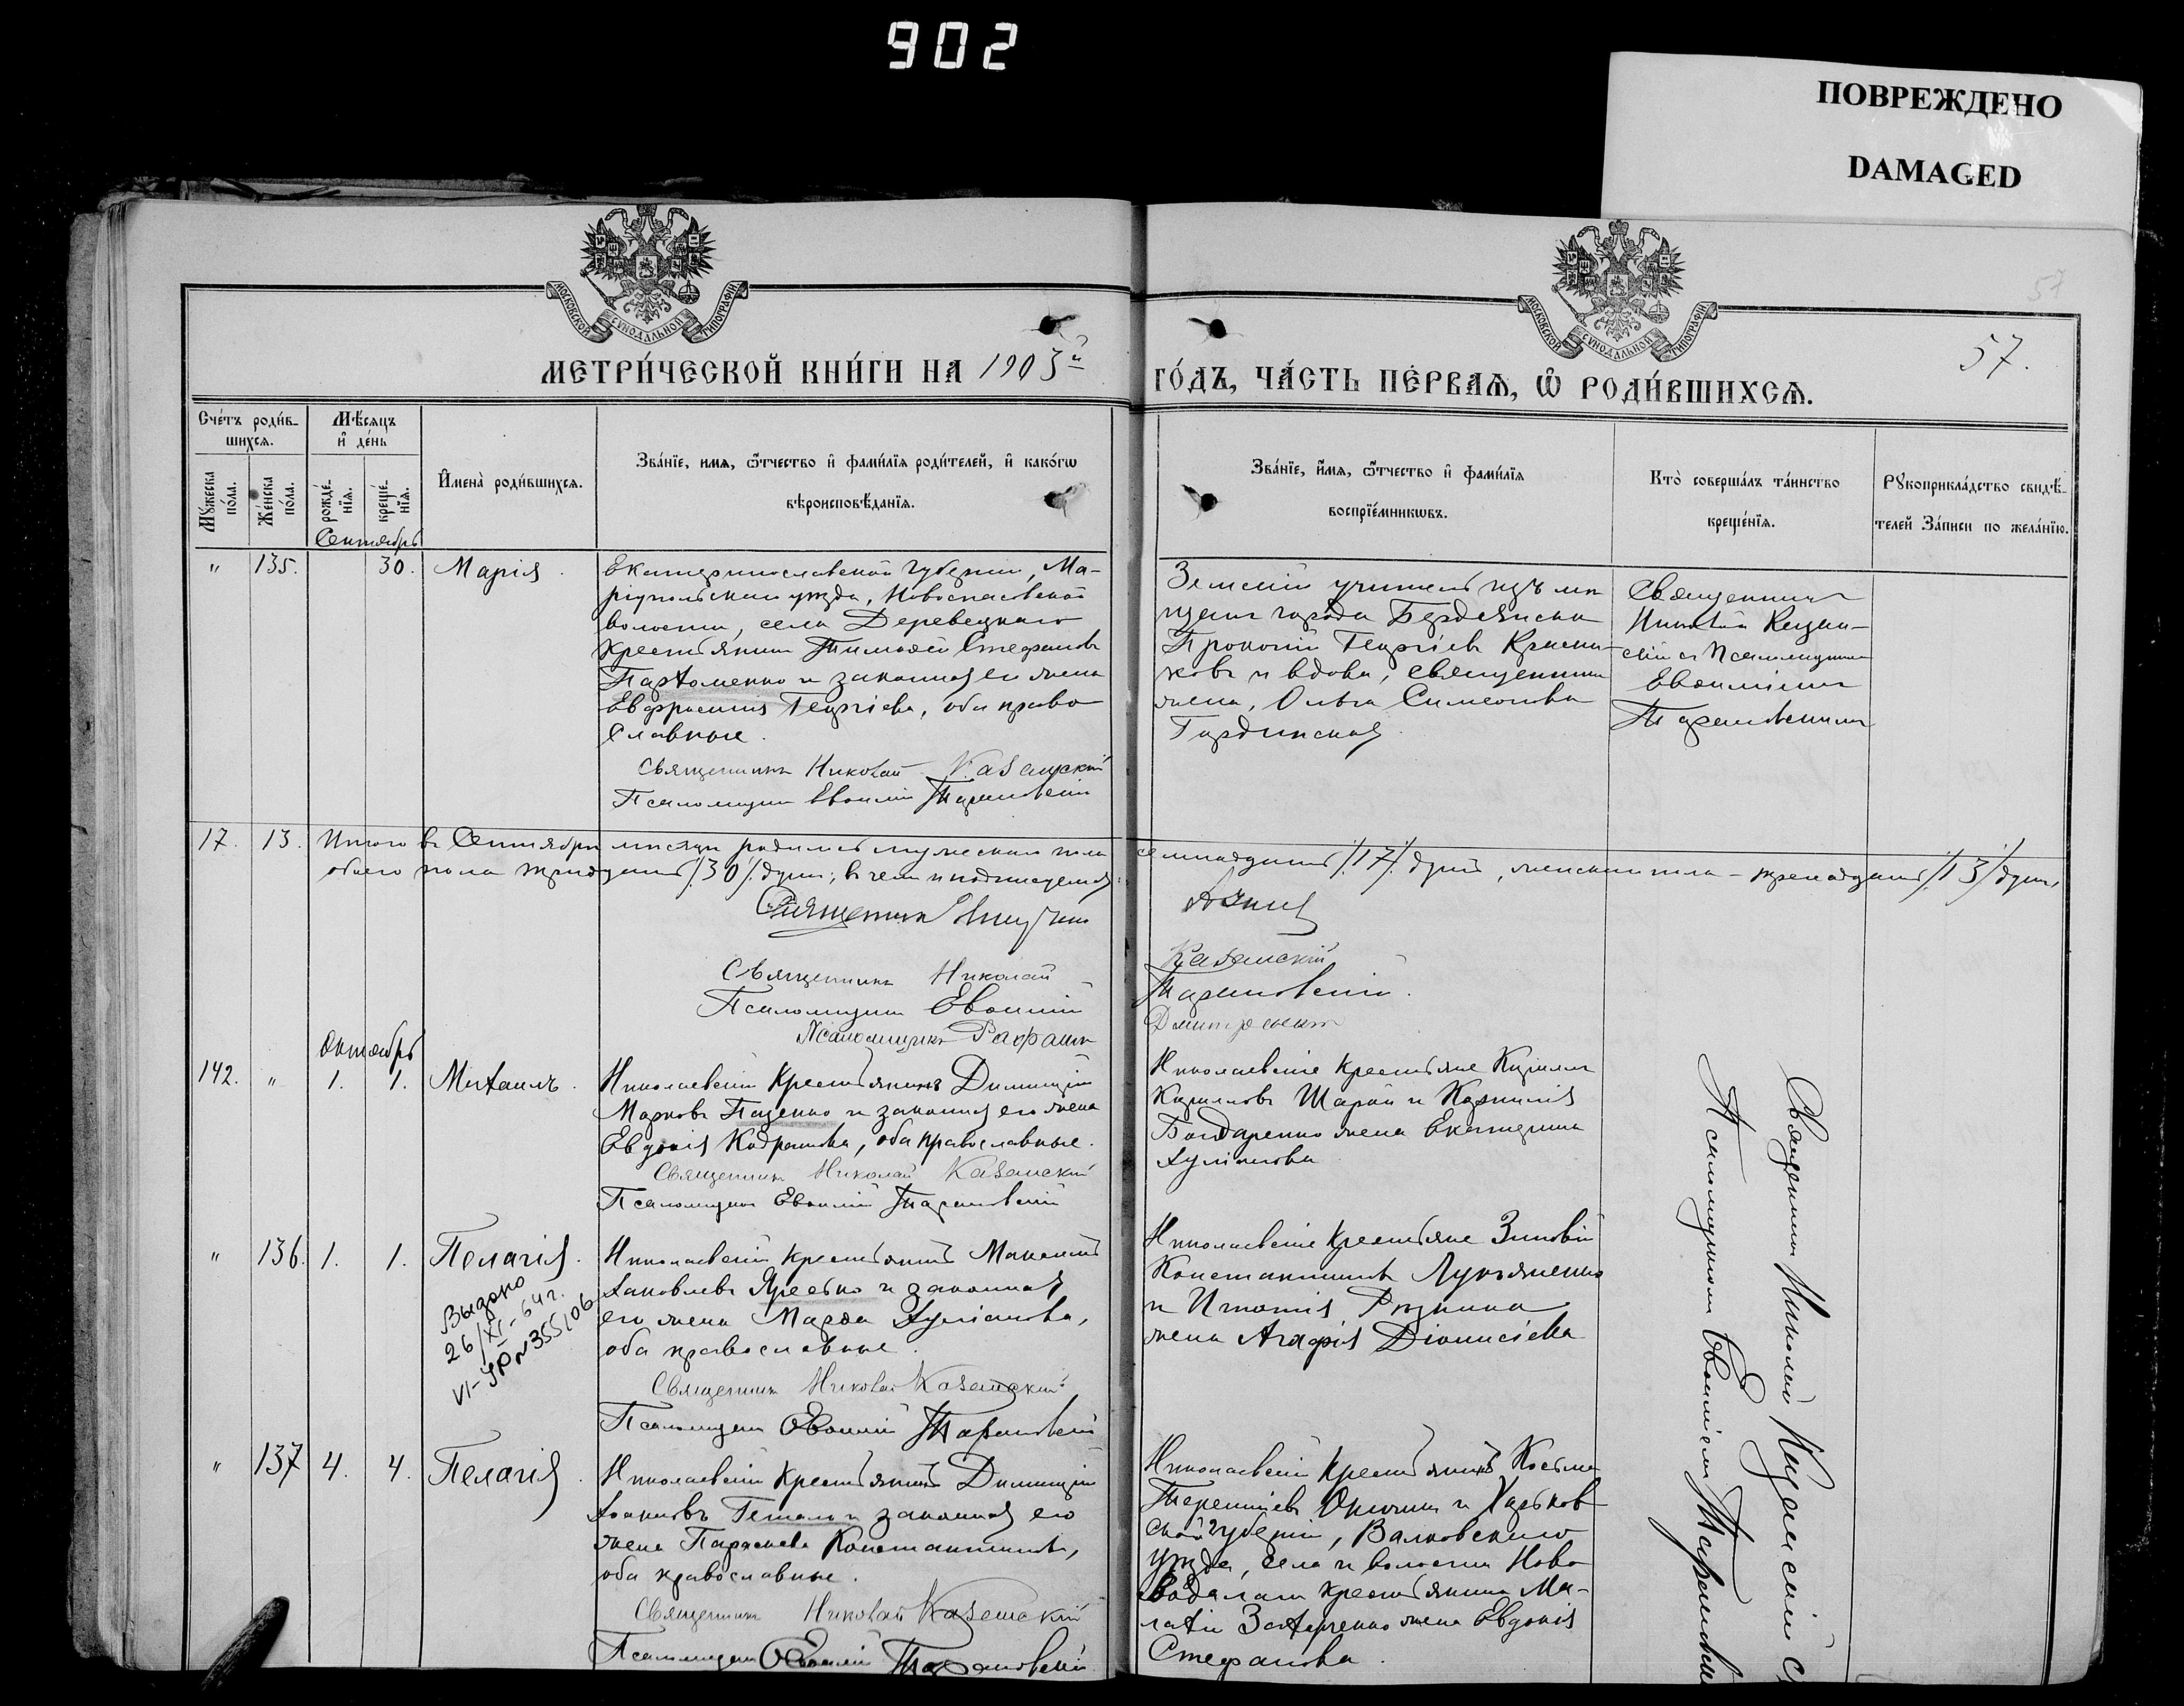 902
ПОВРЕЖДЕНО
DAMAGED
МОСКОВСКОЙ СѴНОДАЛЬНОЙ ТИПОГРАФІИ
МОСКОВСКОЙ СѴНОДАЛЬНОЙ ТИПОГРАФІИ
57
57.
МЕТРИ́ЧЕСКОЙ КНИ́ГИ НА 1903й
ГО́ДЪ, ЧА́СТЬ ПЕ́РВАѦ, Ѽ РОДИ́ВШИХСѦ.
Сче́тъ роди́в-
шихсѧ.
Мꙋжеска
по́ла.
Же́нска
по́ла.
Мѣ́сѧцъ
и҆ де́нь
рожде́-
нїѧ.
креще́-
нїѧ.
И҆мена̀ роди́вшихсѧ.
Зва́нїе, имѧ, ѻ҆́тчество и҆ фами́лїѧ роди́телей, и҆ како́гѡ
вѣроисповѣ́данїѧ.
Зва́нїе, и҆́мѧ, ѻ҆́тчество и҆ фами́лїѧ
воспрїе́мникѡвъ.
Кто̀ соверша́лъ та́инство
креще́нїѧ.
Рꙋкоприкла́дство свидѣ́-
телей За́писи по жела́нїю.
Сентябрь
" 135. 30. Марія.
Екатеринославской губерніи, Ма-
ріупольскаго уѣзда, Новоспасовской
волости, села Деревецкаго
крестьянинъ Тимоѳей Стефановъ
Пархоменко и законная его жена
Евфросинія Георгіева, оба право
славные.
Священникъ Николай Казанскій
Псаломщикъ Евѳимій Тарановскій
Земскій учитель изъ мѣ
щанъ города Бердянска
Прокопій Георгіевъ
и вдова, священника
жена, Ольга Симеонова
Священникъ
Николай Казан-
скій съ Псаломщикомъ
Евѳиміемъ
Тарановскимъ
17. 13. Итого въ Сентябрѣ мѣсяцѣ родилось мужескаго пола семнадцать /:17:/ душъ, женскаго пола – тринадцать /:13:/ душъ,
обоего пола тридцать /:30:/ душъ; въ чемъ и подписуемся:
Священникъ
Священникъ Николай Казанскій
Псаломщикъ Евѳимій Тарановскій.
Псаломщикъ
Октябрь
142. " 1. 1. Михаилъ.
Николаевскій крестьянинъ Димитрій
Марковъ Паценко и законная его жена
Евдокія Кодратова, оба православные.
Священникъ Николай Казанскій
Псаломщикъ Евѳимій Тарановскій
Николаевскіе крестьяне Кириллъ
Кирилловъ Шарай и Корнилія
Бондаренко жена Екатерина
Іуліанова
" 136. 1. 1. Пелагія.
Выдано
26/XI-64 г.
VI-ЯР № 355106
Николаевскій крестьянинъ Макемій
Іаковлевъ Яресько и законная
его жена Марѳа Іуліанова,
оба православные.
Священникъ Николай Казанскій
Псаломщикъ Евѳимій Тарановскій
Николаевскіе крестьяне Зиновій
Константиновъ Лукьяненко
и Игнатія Рязкина
жена Агафія Діонисіева
" 137 4. 4. Пелагія.
Николаевскій крестьянинъ Димитрій
Іоанновъ и законная его
жена Параскева Константинова,
оба православные.
Священникъ Николай Казанскій
Псаломщикъ Евѳимій Тарановскій
Николаевскій крестьянинъ Косьма
Терентіевъ и Харьков-
ской губерніи, Валковскаго
уѣзда, села и волости Ново
Водолаги крестьянина Ма-
лахія Захарченко жена Евдокія
Стефанова.
Священникъ Николай Казанскій съ
Псаломщикомъ Евѳиміемъ Тарановскимъ